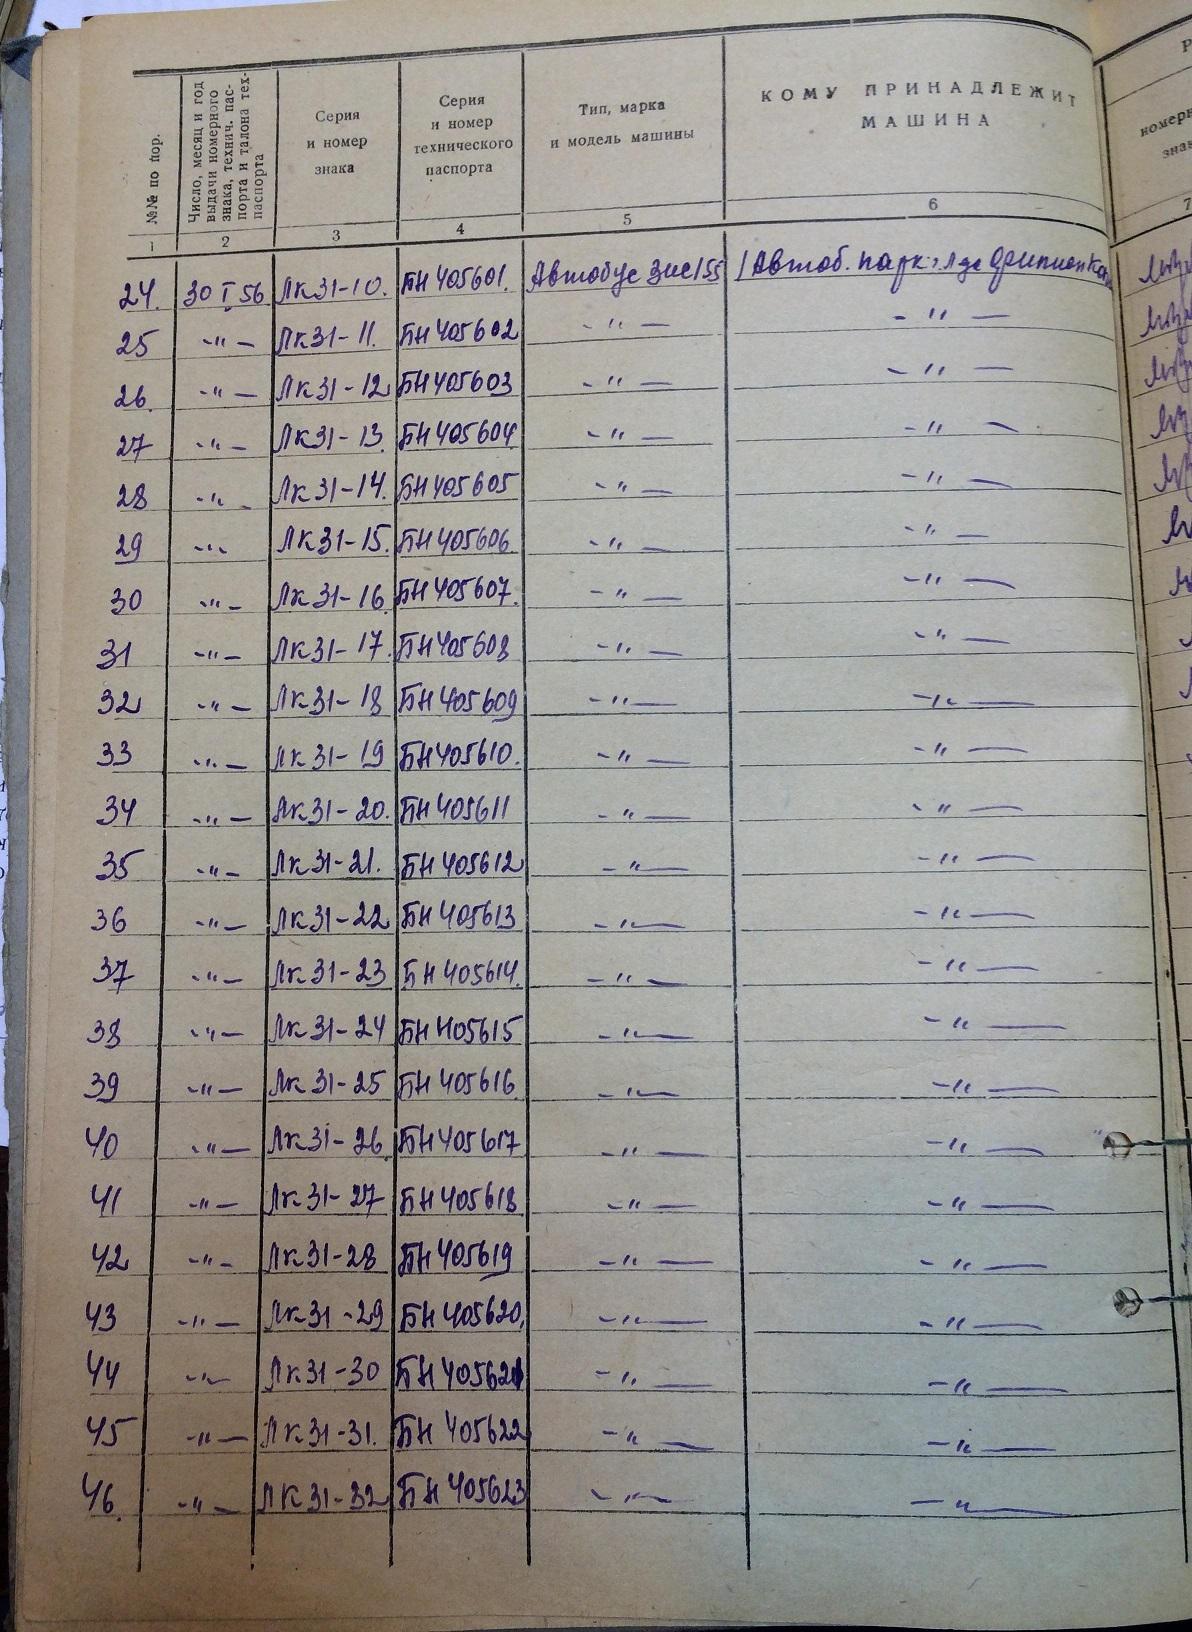 №№ по пор.
Число, месяц и год
выдачи номерного
знака, технич. пас-
порта и талона тех-
паспорта
Серия
и номер
знака
Серия
и номер
технического
паспорта
Тип, марка
и модель машины
КОМУ ПРИНАДЛЕЖИТ
МАШИНА
номерн
знак
1 2 3 4 5 6 7
24. 30 I 56 Лк 31-10. БН 405601. Автобус Зис 155 1 Автоб. парк
25 -"- Лк 31-11. БН 405602 -"- -"-
26. -"- Лк 31-12 БН 405603 -"- -"-
27 -"- Лк 31-13. БН 405604 -"- -"-
28 -"- Лк 31-14. БН 405605 -"- -"-
29 -"- Лк 31-15. БН 405606 -"- -"-
30 -"- Лк 31-16 БН 405607. -"- -"-
31 -"- Лк 31-17. БН 405608 -"- -"-
32 -"- Лк 31-18 БН 405609 -"- -"-
33 -"- Лк 31-19 БН 405610. -"- -"-
34 -"- Лк 31-20. БН 405611 -"- -"-
35 -"- Лк 31-21. БН 405612 -"- -"-
36 -"- Лк 31-22 БН 405613 -"- -"-
37 -"- Лк 31-23 БН 405614. -"- -"-
38 -"- Лк 31-24 БН 405615 -"- -"-
39 -"- Лк 31-25 БН 405616 -"- -"-
40 -"- Лк 31-26 БН 405617 -"- -"-
41 -"- Лк 31-27 БН 405618 -"- -"-
42 -"- Лк 31-28 БН 405619 -"- -"-
43 -"- Лк 31-29 БН 405620. -"- -"-
44 -"- Лк 31-30 БН 405621 -"- -"-
45 -"- Лк 31-31. БН 405622 -"- -"-
46. -"- ЛК 31-32 БН 405623 -"- -"-